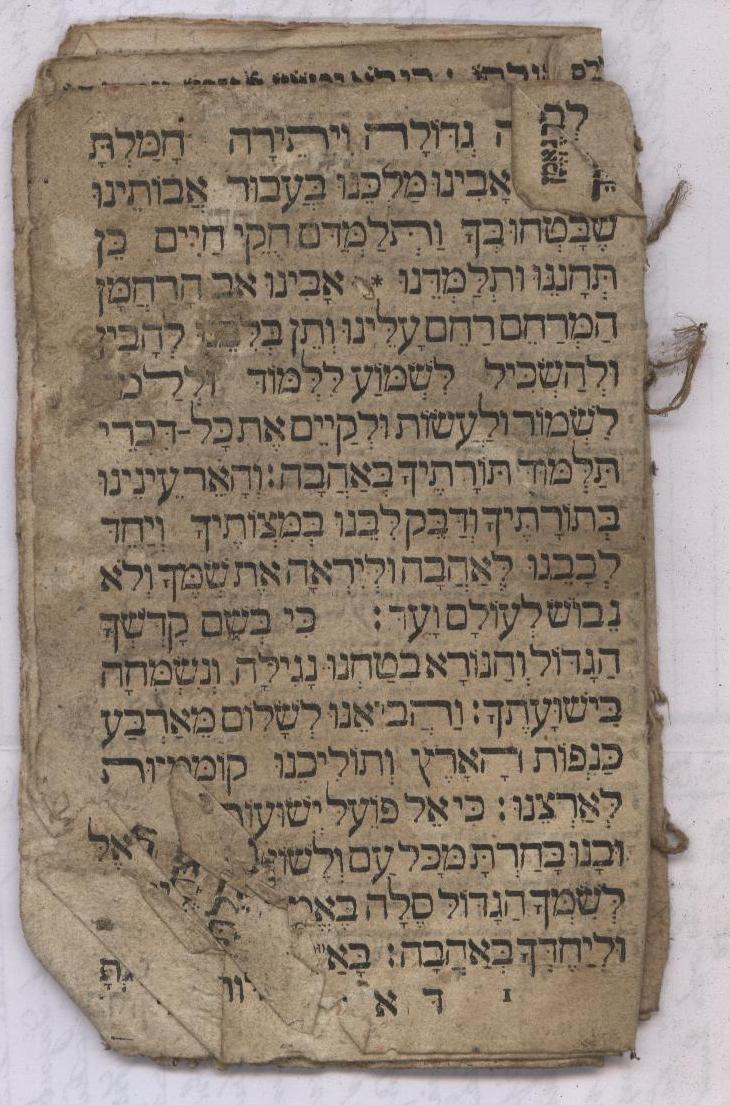 גְדוֹלָה וִיתֵירָה חָמַלְתָּ
אָבִינוּ מַלְכֵּנוּ בַּעֲבוּר אֲבוֹתֵינוּ
שֶׁבָּטְחוּ בְךָ וַתְּלַמְּדֵם חֻקֵּי חַיִּים כֵּן
תְּחָנֵּנוּ וּתְלַמְּדֵנוּ * אָבִינוּ אַב הָרַחֲמָן
הַמְרַחֵם רַחֵם עָלֵינוּ וְתֵן בְּלִבֵּנוּ לְהָבִין
וּלְהַשְׂכִּיל לִשְׁמוֹעַ לִלְמוֹד
לִשְׁמוֹר וְלַעֲשׂוֹת וּלְקַיֵּים אֶת כָּל־דִּבְרֵי
תַּלְמוּד תּוֹרָתֶיךָ בְּאַהֲבָה: וְהָאֵר עֵינֵינוּ
בְּתוֹרָתֶיךָ וְדַבֵּק לִבֵּנוּ בְּמִצְוֹתֶיךָ וְיַחֵד
לְבָבֵנוּ לְאַהֲבָה וּלְיִרְאָה אֶת שְׁמֶךָ וְלֹא
נֵבוֹשׁ לְעוֹלָם וָעֶד: כִּי בְשֵׁם קָדְשְׁךָ
הַגָּדוֹל וְהַנּוֹרָא בָּטַחְנוּ נָגִילָה וְנִשְׂמְחָה
בִּישׁוּעָתֶךָ: וַהֲבִיאֵנוּ לְשָׁלוֹם מֵאַרְבַּע
כַּנְפוֹת הָאָרֶץ וְתוֹלִיכֵנוּ קוֹמְמִיּוּת
לְאַרְצֵנוּ: כִּי אֵל פּוֹעֵל יְשׁוּעוֹת
וּבָנוּ בָחַרְתָּ מִכָּל עַם וְלָשׁוֹן
לְשִׁמְךָ הַגָּדוֹל סֶלָה בֶּאֱמֶת
וּלְיַחֶדְךָ בְּאַהֲבָה: